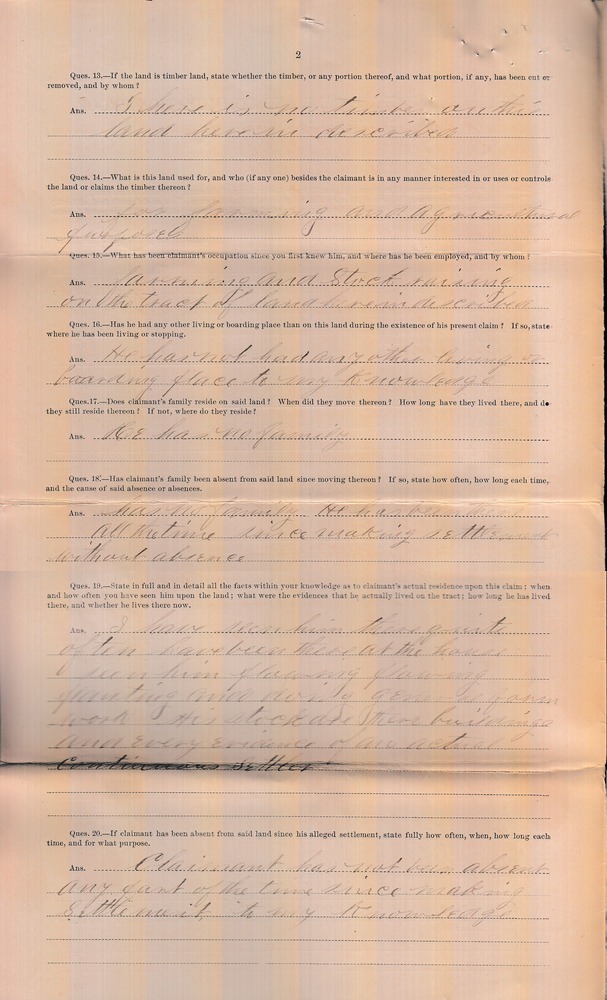 2
Ques. 13.—If the land is timber land, state whether the timber, or any portion thereof, and what portion, if any, has been cut or
removed, and by whom?
Ans. There is no timber on this
land herein described
Ques. 14.—What is this land used for, and who (if any one) besides the claimant is in any manner interested in or uses or controls
the land or claims the timber thereon?
Ans. for farming and agricultural
purposes
Ques. 15.—What has been claimant's occupation since you first knew him, and where has he been employed, and by whom?
Ans. farming and Stock raising
on the tract of land herein described
Ques. 16.—Has he had any other living or boarding place than on this land during the existence of his present claim? If so, state
where he has been living or stopping.
Ans. He has not had any other living or
boarding place to my Knowledge
Ques.17.—Does claimant's family reside on said land? When did they move thereon? How long have they lived there, and do
they still reside thereon? If not, where do they reside?
Ans. He has no family
Ques. 18.—Has claimant's family been absent from said land since moving thereon? If so, state how often, how long each time,
and the cause of said absence or absences.
Ans. has no family He has been
all the time since making settlement
without absence
Ques. 19.—State in full and in detail all the facts within your knowledge as to claimant's actual residence upon this claim: when
and how often you have seen him upon the land; what were the evidences that he actually lived on the tract; how long he has lived
there, and whether he lives there now.
Ans. I have seen him there quite
often have been there at the house
seen him plowing
planting and doing general farm
work His stock are there buildings
and every evidence of an actual
Continuous Settler
Ques. 20.—If claimant has been absent from said land since his alleged settlement, state fully how often, when, how long each
time, and for what purpose.
Ans. Claimant has not been absent
any part of the time since making
Settlement to my Knowledge